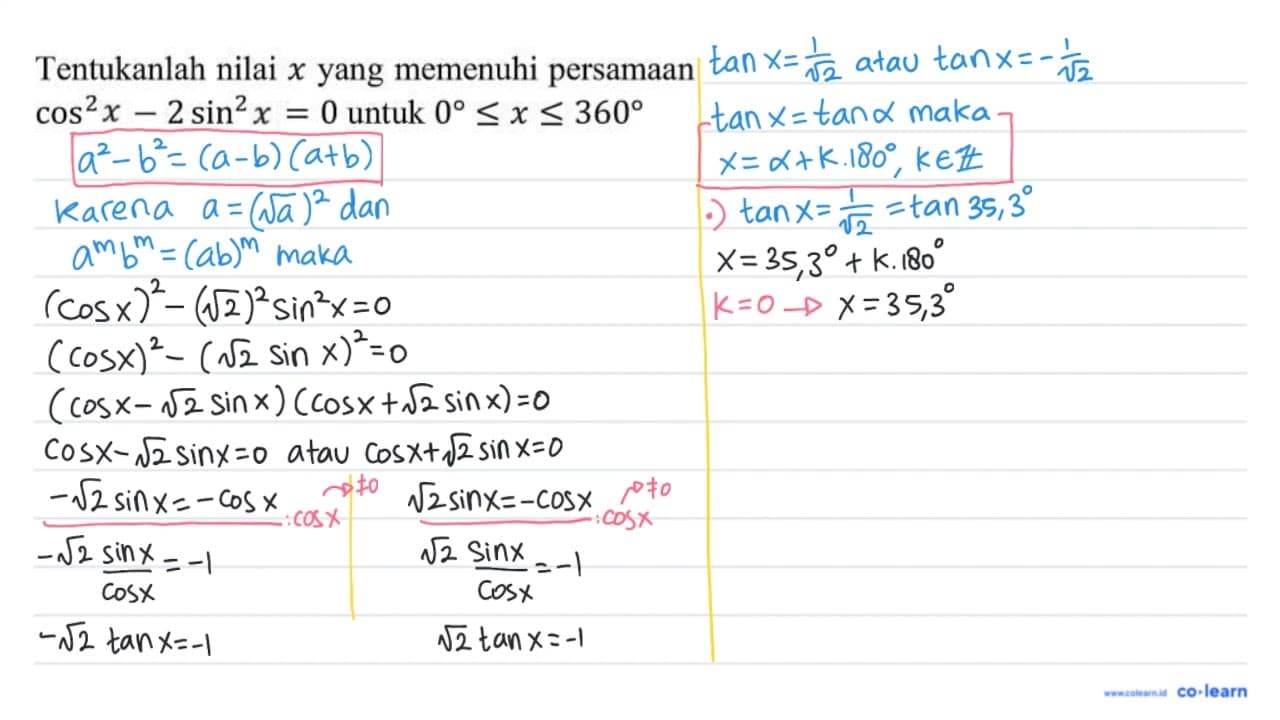 Tentukanlah nilai x yang memenuhi persamaan
cos²x − 2 sin²x = 0 untuk 0° ≤ x ≤ 360°
a²−b²=(a−b)(a+b)
Karena a=(√a)² dan
aᵐbᵐ=(ab)ᵐ maka
(cos x)²−(√2)²sin²x=0
(cosx)²−(√2 sin x)²=0
(cosx−√2 sinx)(cosx+√2 sinx)=0
cosx−√2 sinx=0 atau cosx+√2 sinx=0
−√2 sinx=−cosx :cosx →≠0
−√2 sinx/cosx=−1
−√2 tanx=−1
√2 sinx=−cosx :cosx →≠0
√2 sinx/cosx=−1
√2 tanx=−1
tanx=1/√2 atau tanx=−1/√2
tanx=tanα maka
x=α+k.180°, k∈ℤ
•) tanx=1/√2=tan 35,3°
x=35,3°+k.180°
k=0 → x=35,3°
www.colearn.id co·learn